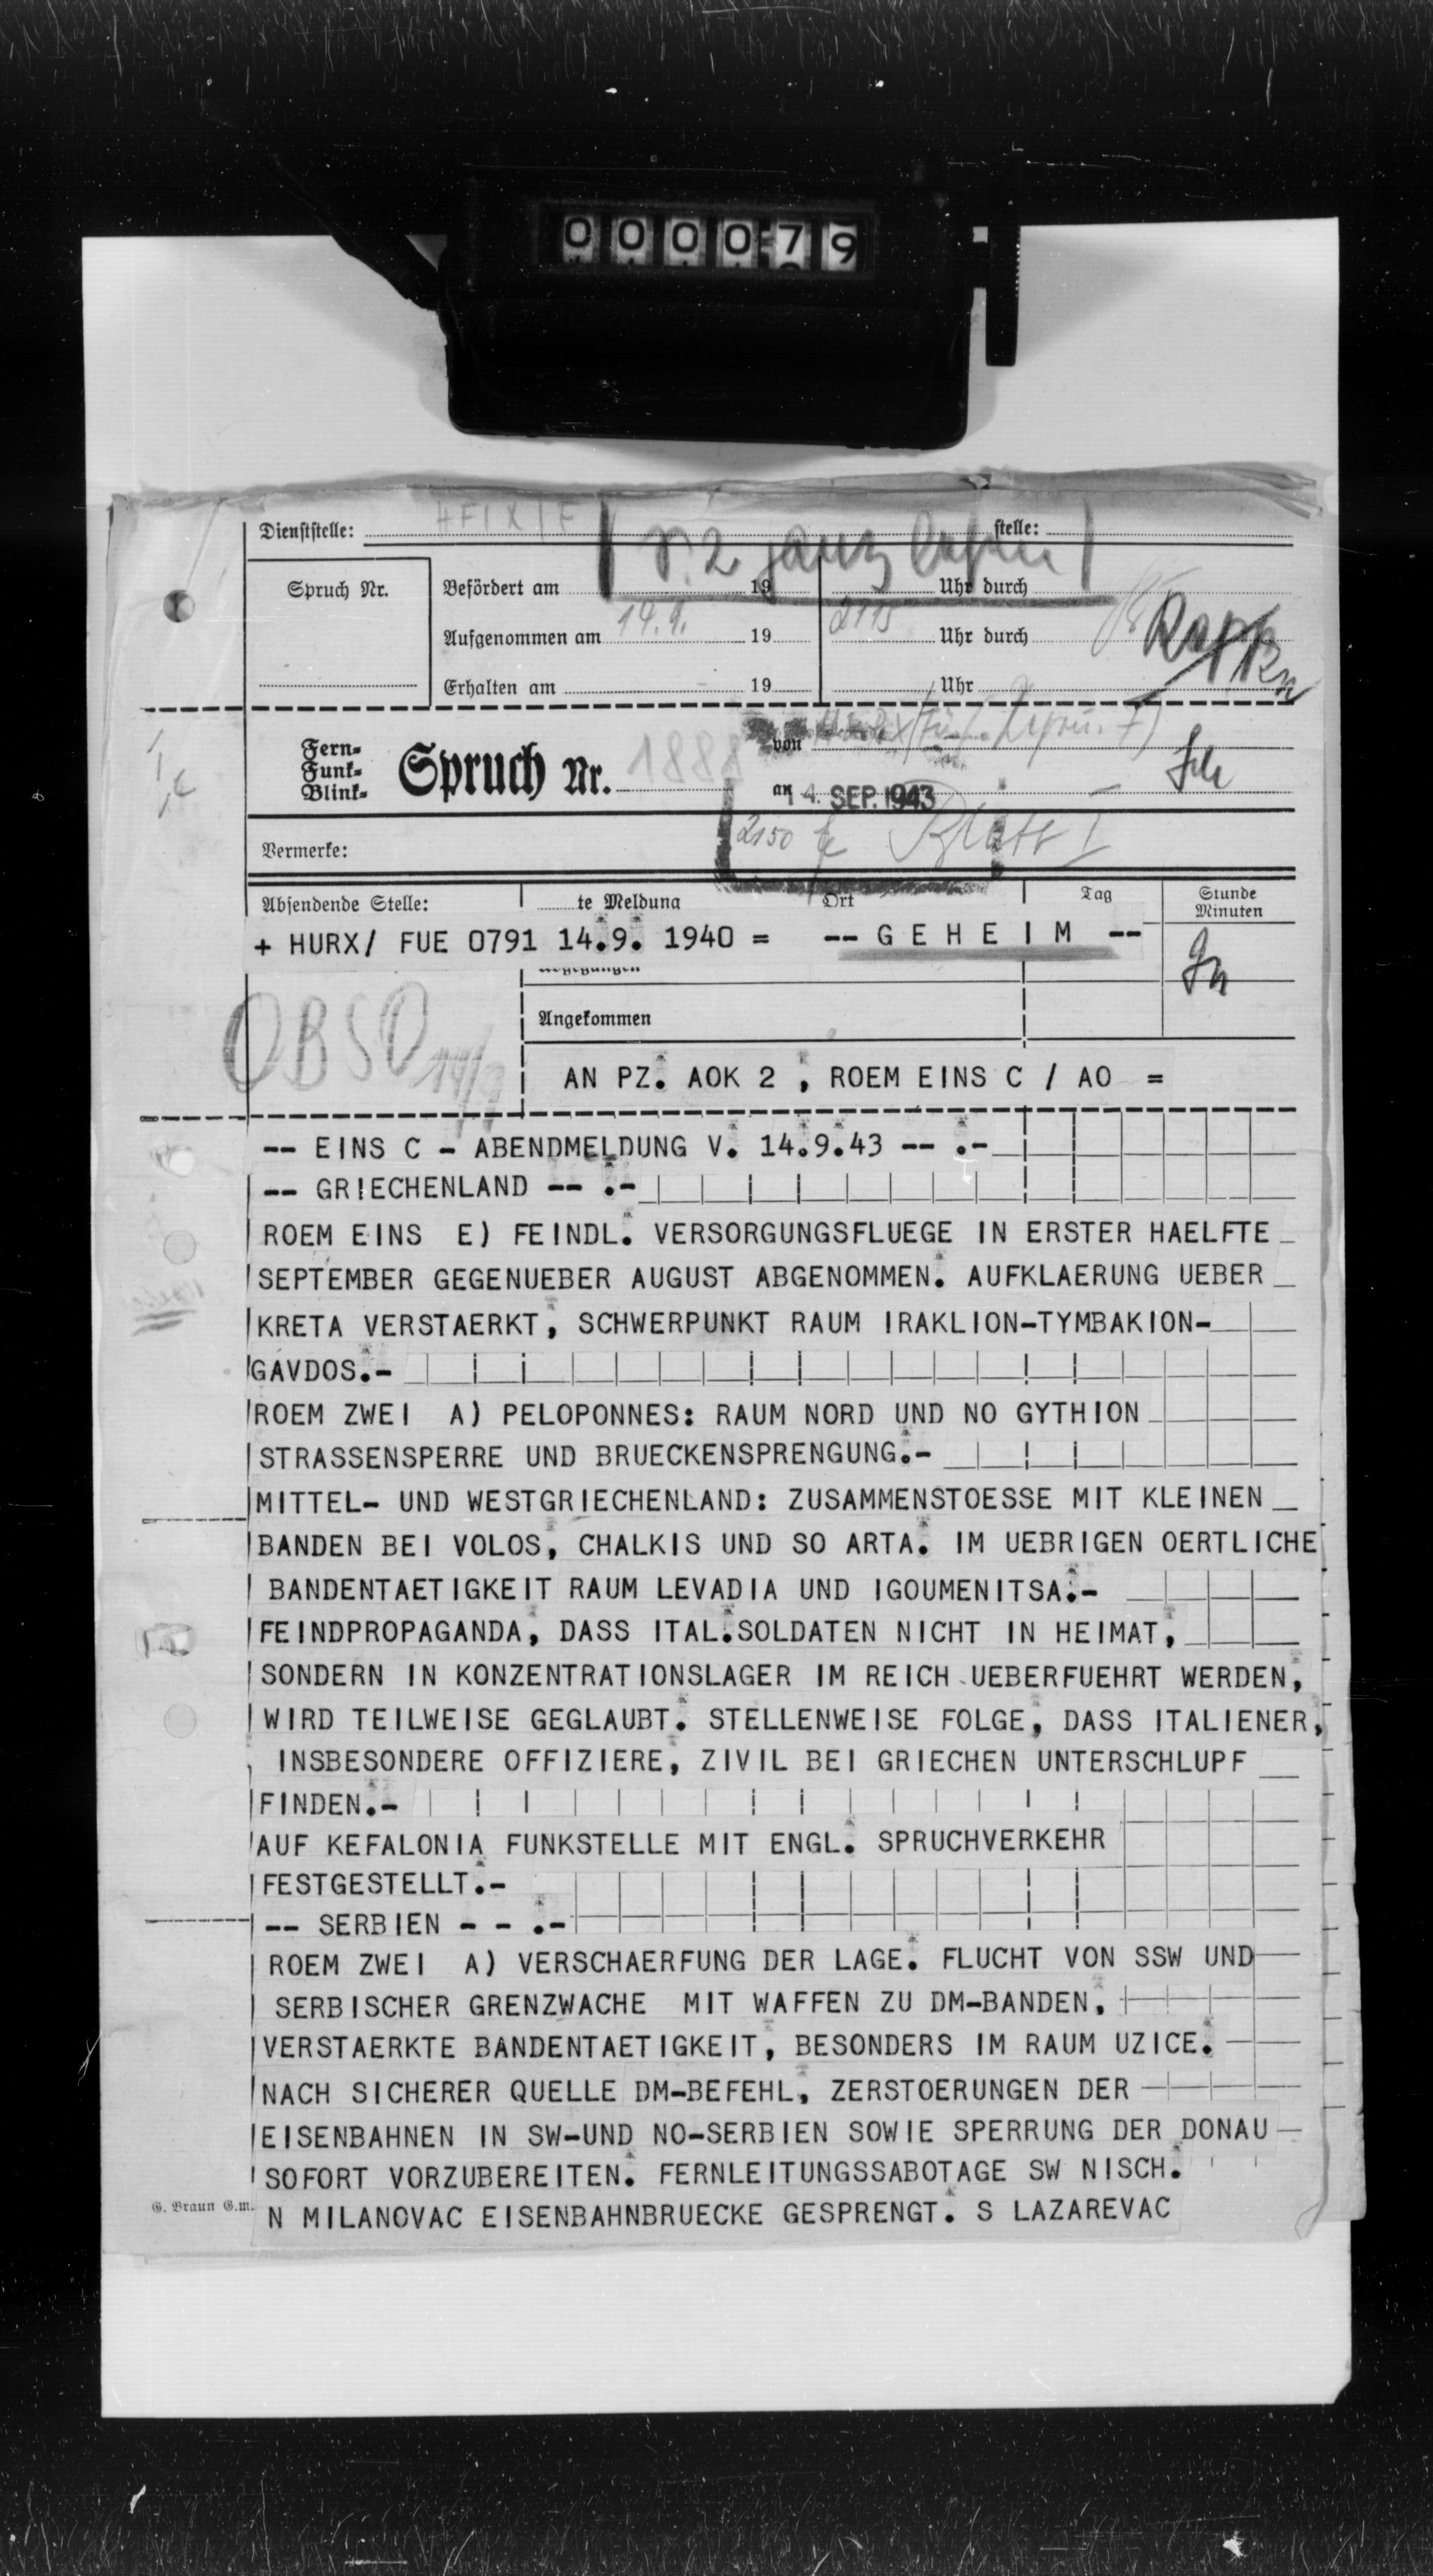 000079
Dienststelle: HFIXIF stelle:
Spruch Nr.
Befördert am 19 Uhr durch
Aufgenommen am 14.9. 19 2115 Uhr durch
Erhalten am 19 Uhr
Fern=
Funk=
Blink=
Spruch Nr. 1888 von
an 14. SEP. 1943
Vermerke: 2150 Blatt I
Absendende Stelle: te Meldung Ort Tag Stunde Minuten
+ HURX/ FUE 0791 14.9. 1940 = -- G E H E I M --
Angekommen
OBSO 14/9
AN PZ. AOK 2 , ROEM EINS C / AO =
-- EINS C - ABENDMELDUNG V. 14.9.43 -- .-
-- GRIECHENLAND -- .-
ROEM EINS E) FEINDL. VERSORGUNGSFLUEGE IN ERSTER HAELFTE
SEPTEMBER GEGENUEBER AUGUST ABGENOMMEN. AUFKLAERUNG UEBER
KRETA VERSTAERKT, SCHWERPUNKT RAUM IRAKLION-TYMBAKION-
GAVDOS.-
ROEM ZWEI A) PELOPONNES: RAUM NORD UND NO GYTHION
STRASSENSPERRE UND BRUECKENSPRENGUNG.-
MITTEL- UND WESTGRIECHENLAND: ZUSAMMENSTOESSE MIT KLEINEN
BANDEN BEI VOLOS, CHALKIS UND SO ARTA. IM UEBRIGEN OERTLICHE
BANDENTAETIGKEIT RAUM LEVADIA UND IGOUMENITSA.-
FEINDPROPAGANDA, DASS ITAL.SOLDATEN NICHT IN HEIMAT,
SONDERN IN KONZENTRATIONSLAGER IM REICH UEBERFUEHRT WERDEN,
WIRD TEILWEISE GEGLAUBT. STELLENWEISE FOLGE, DASS ITALIENER,
INSBESONDERE OFFIZIERE, ZIVIL BEI GRIECHEN UNTERSCHLUPF
FINDEN.-
AUF KEFALONIA FUNKSTELLE MIT ENGL. SPRUCHVERKEHR
FESTGESTELLT.-
-- SERBIEN - - .-
ROEM ZWEI A) VERSCHAERFUNG DER LAGE. FLUCHT VON SSW UND
SERBISCHER GRENZWACHE MIT WAFFEN ZU DM-BANDEN.
VERSTAERKTE BANDENTAETIGKEIT, BESONDERS IM RAUM UZICE.
NACH SICHERER QUELLE DM-BEFEHL, ZERSTOERUNGEN DER
EISENBAHNEN IN SW-UND NO-SERBIEN SOWIE SPERRUNG DER DONAU
SOFORT VORZUBEREITEN. FERNLEITUNGSSABOTAGE SW NISCH.
N MILANOVAC EISENBAHNBRUECKE GESPRENGT. S LAZAREVAC
G. Braun G.m.